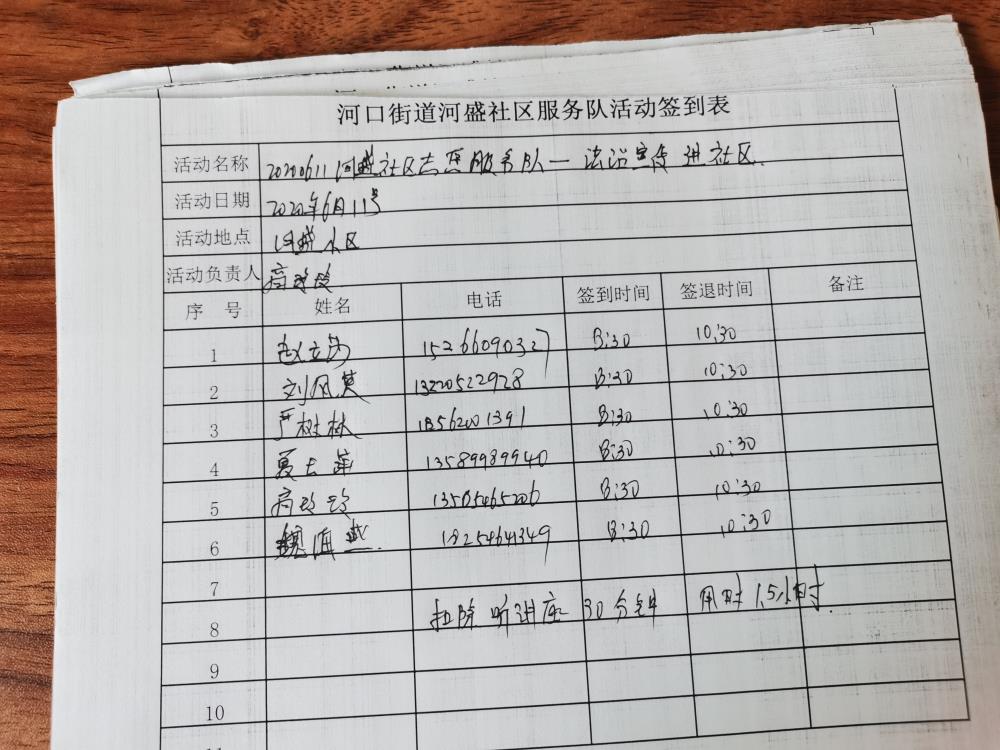 河口街道河盛社区服务队活动签到表
活动名称 20200611河盛社区志愿服务队—法治宣传进社区
活动日期 2020年6月11号
活动地点 河盛小区
活动负责人
序号 姓名 电话 签到时间 签退时间 备注
1 15266090327 8:30 10:30
2 刘凤英 13220522928 8:30 10:30
3 严树林 18562001391 8:30 10:30
4 13589989940 8:30 10:30
5 8:30 10:30
6 魏海燕 18254641349 8:30 10:30
7
8 扣除听讲座30分钟 用时1.5小时.
9
10